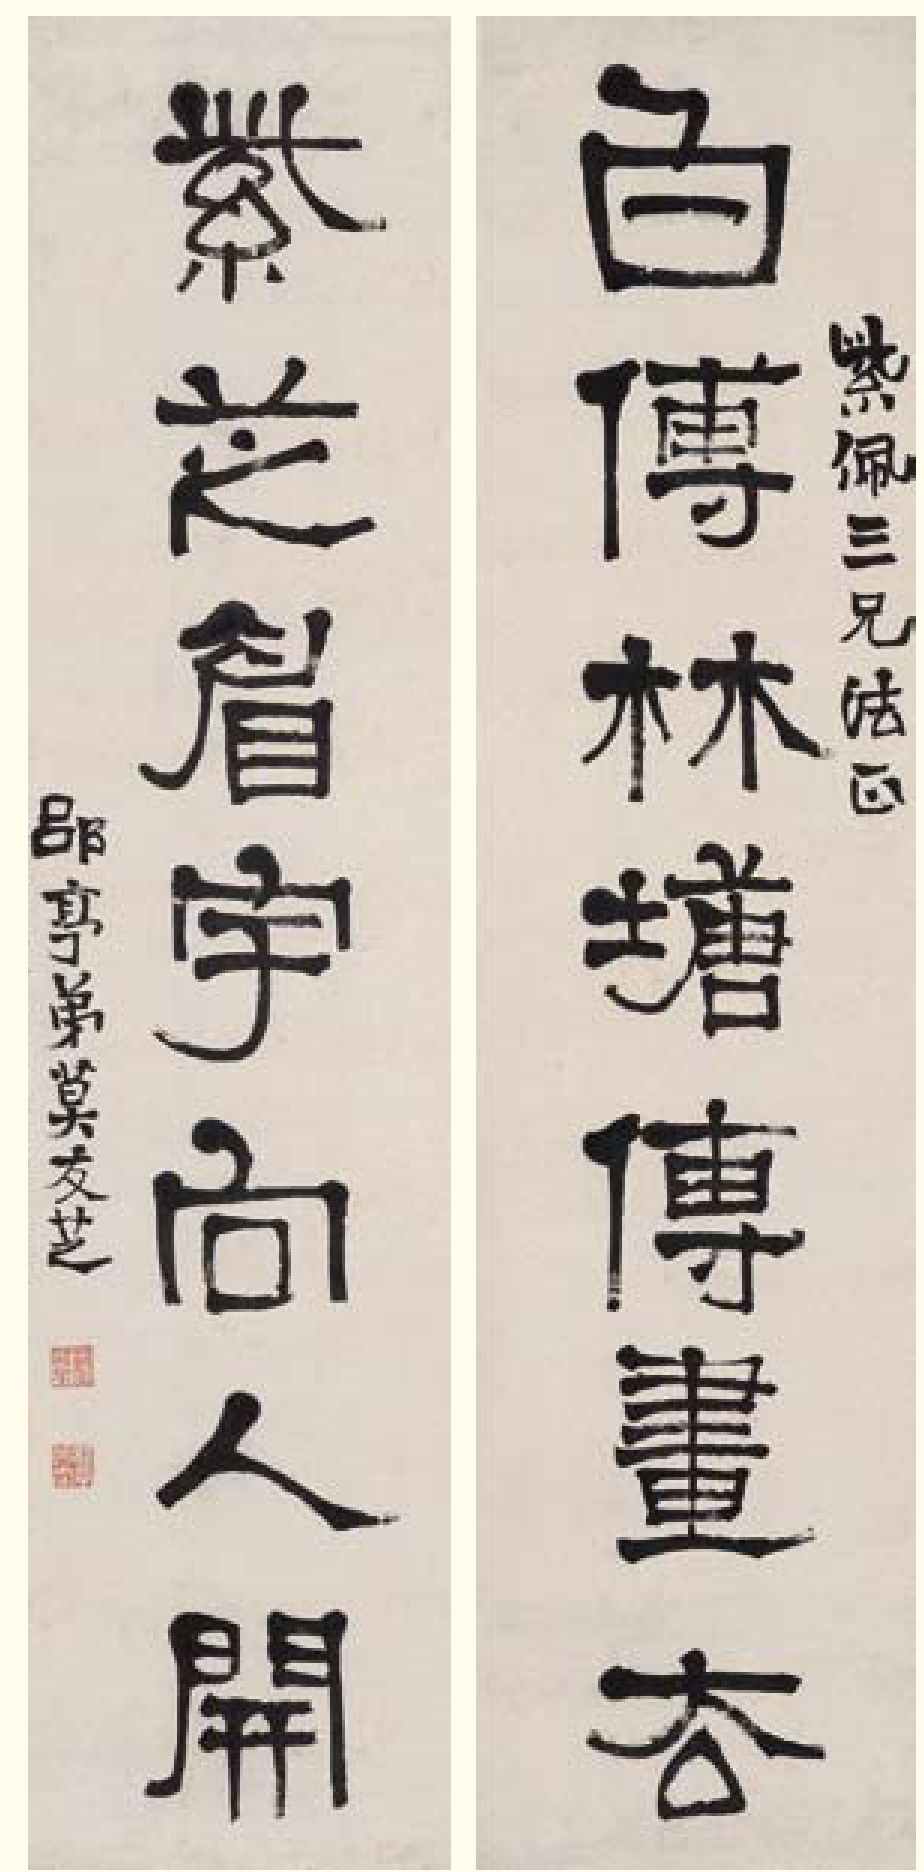 紫佩三兄法正
白傅林塘傳畫去
紫芝眉宇向人開
郘亭弟莫友芝